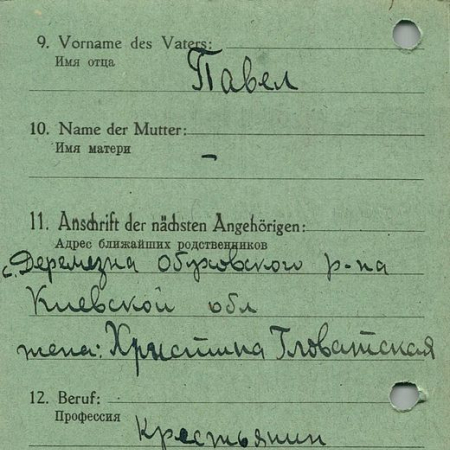 9. Vorname des Vaters:
Имя отца
Павел
10. Name der Mutter:
Имя матери
–
11. Anschrift der nächsten Angehörigen:
Адрес ближайших родственников
с. Деремезна Обуховского р-на
Киевской обл
жена: Христина Гловатская
12. Beruf:
Профессия
Крестьянин